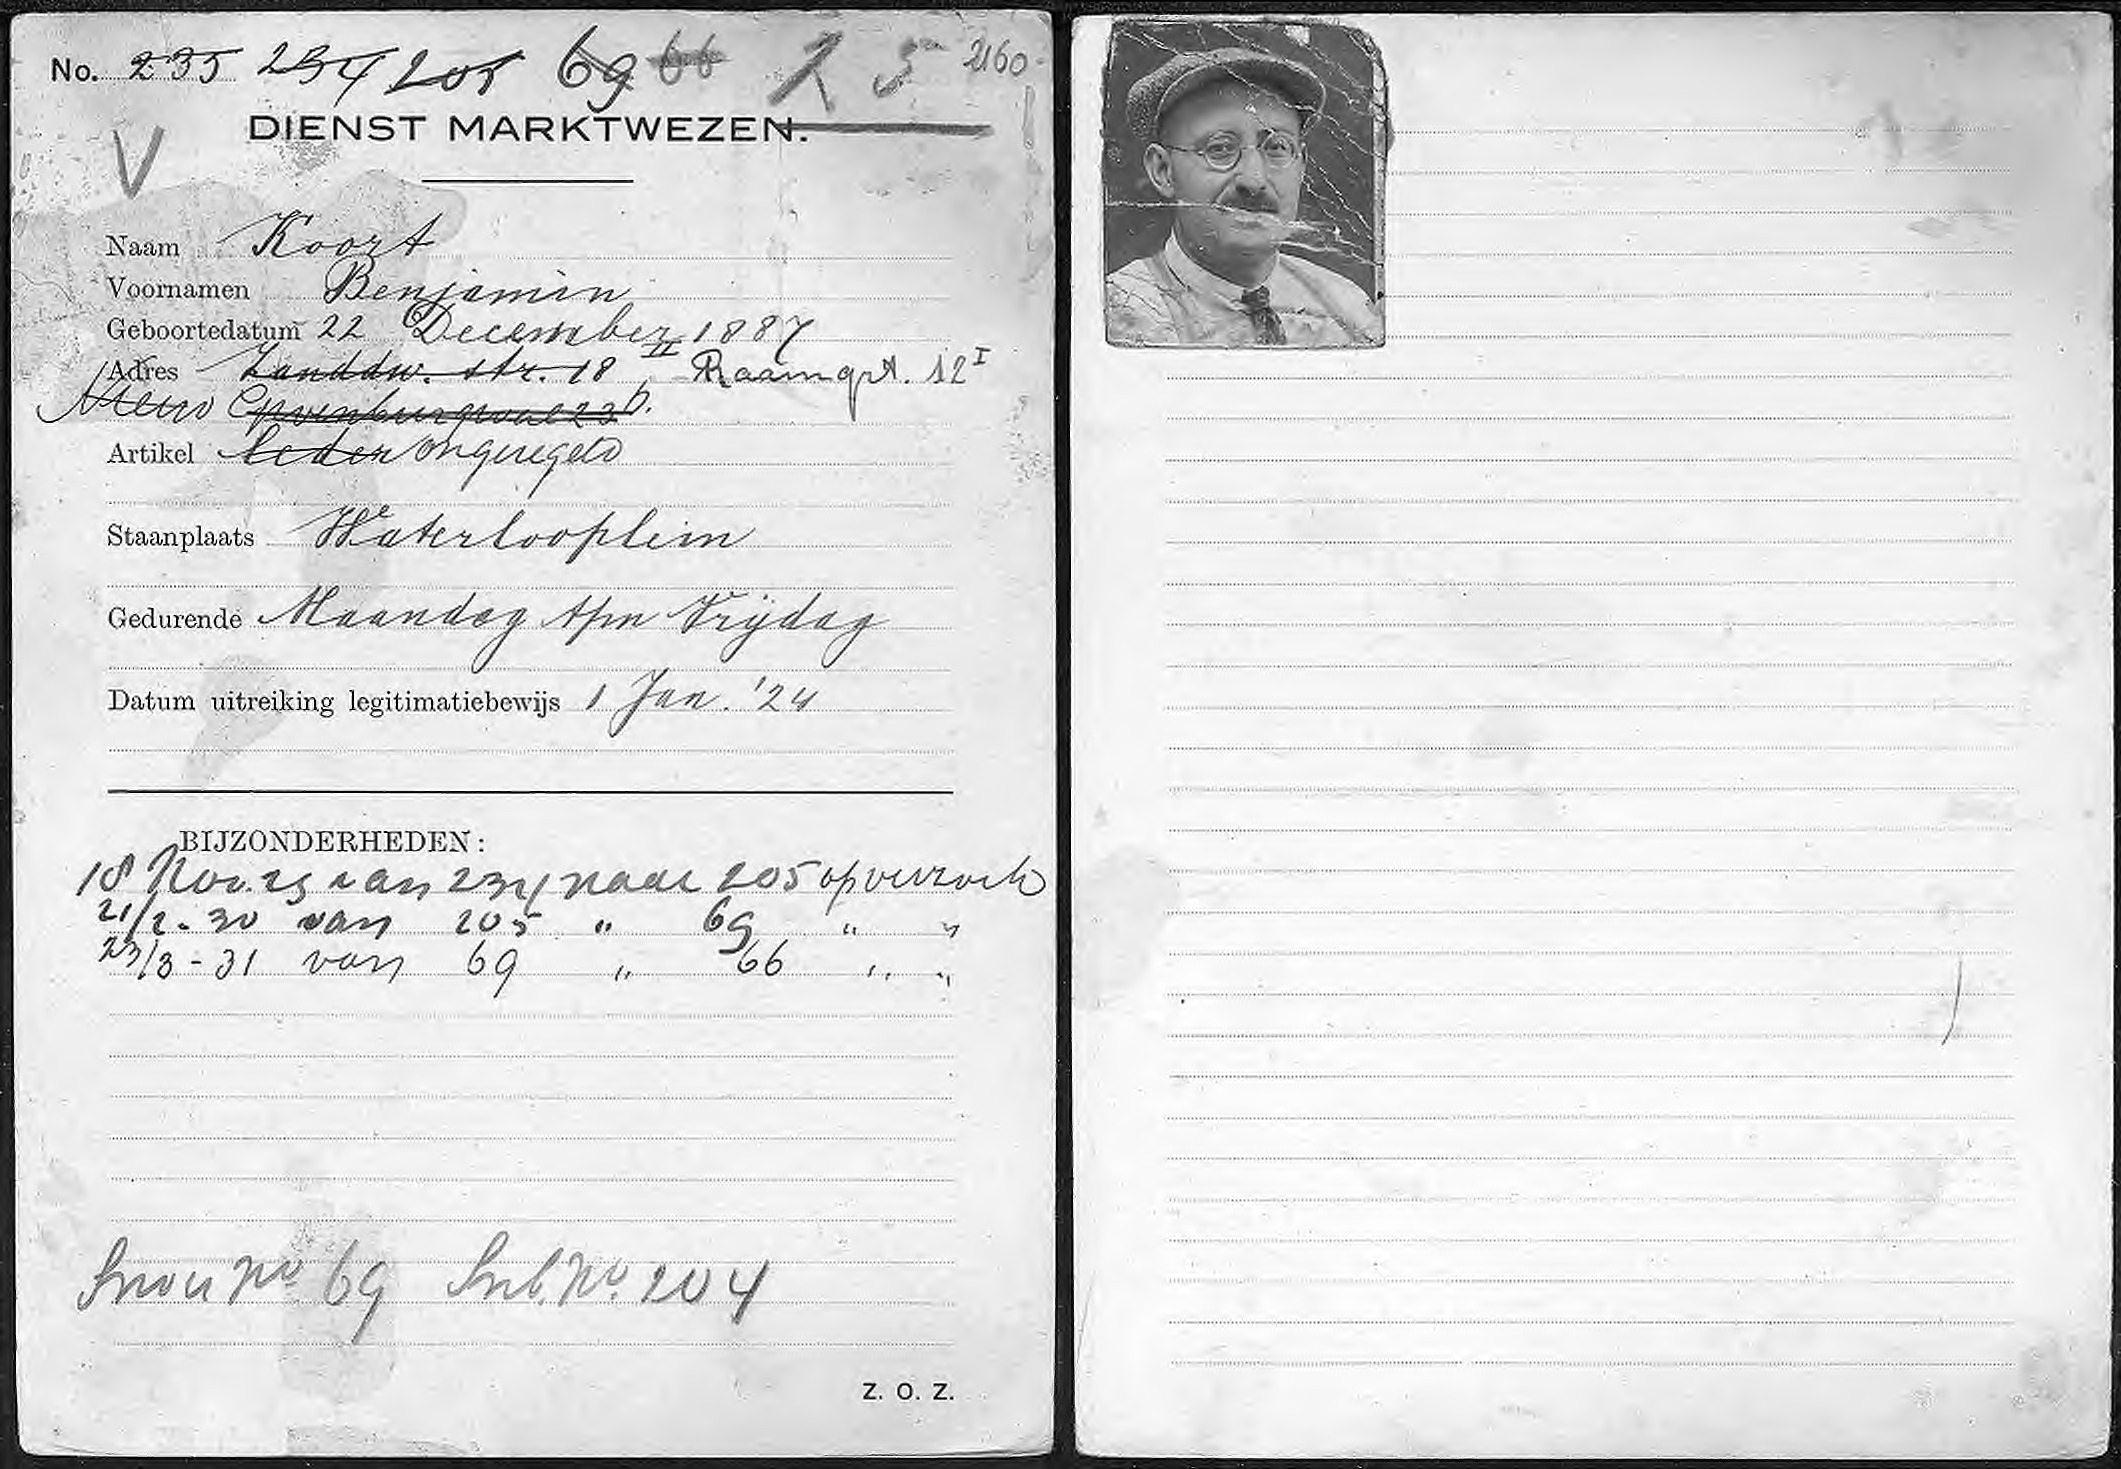 No. 235 234 205 69 66 25 2160
DIENST MARKTWEZEN.
V
Naam Koort
Voornamen Benjamin
Geboortedatum 22 December 1887
Adres Zanddw. str. 18 II Raamgrt. 12 I
Nieuw
Artikel leder ongeregeld
Staanplaats Waterlooplein
Gedurende Maandag t/m Vrijdag
Datum uitreiking legitimatiebewijs 1 Jan. '24
BIJZONDERHEDEN:
18 Nov. 29 van 234 naar 205 op verzoek
21/2 - 30 van 205 " 69 " "
23/3 - 31 van 69 " 66 " "
No 69 No. 204
Z. O. Z.